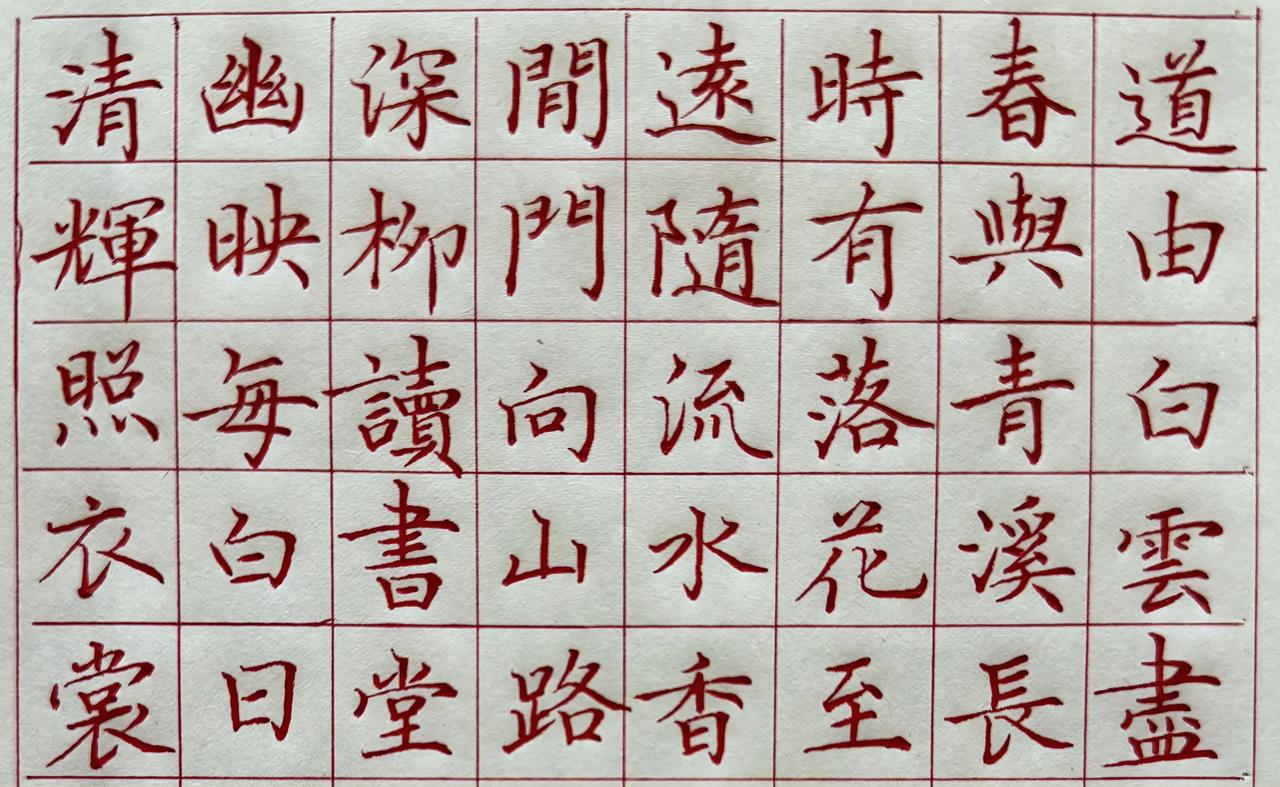 道由白雲盡
春與青溪長
時有落花至
遠隨流水香
間門向山路
深柳讀書堂
幽映每白日
清輝照衣裳